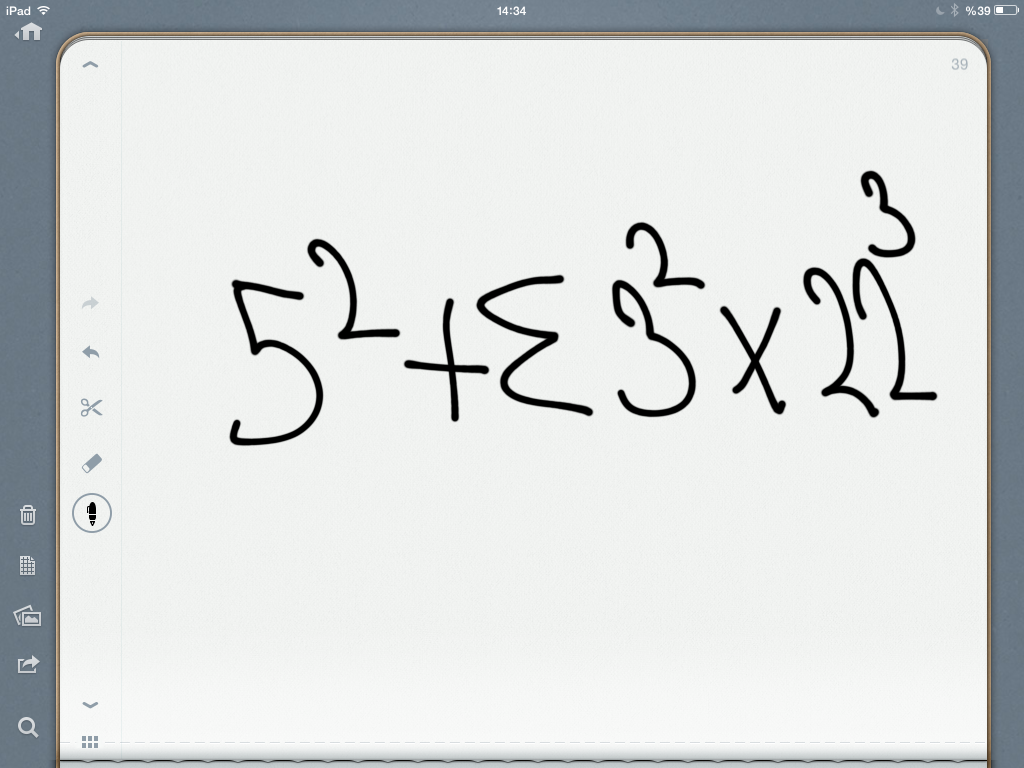 iPad 14:34 %39
39
5² + Σ 3² x 22³